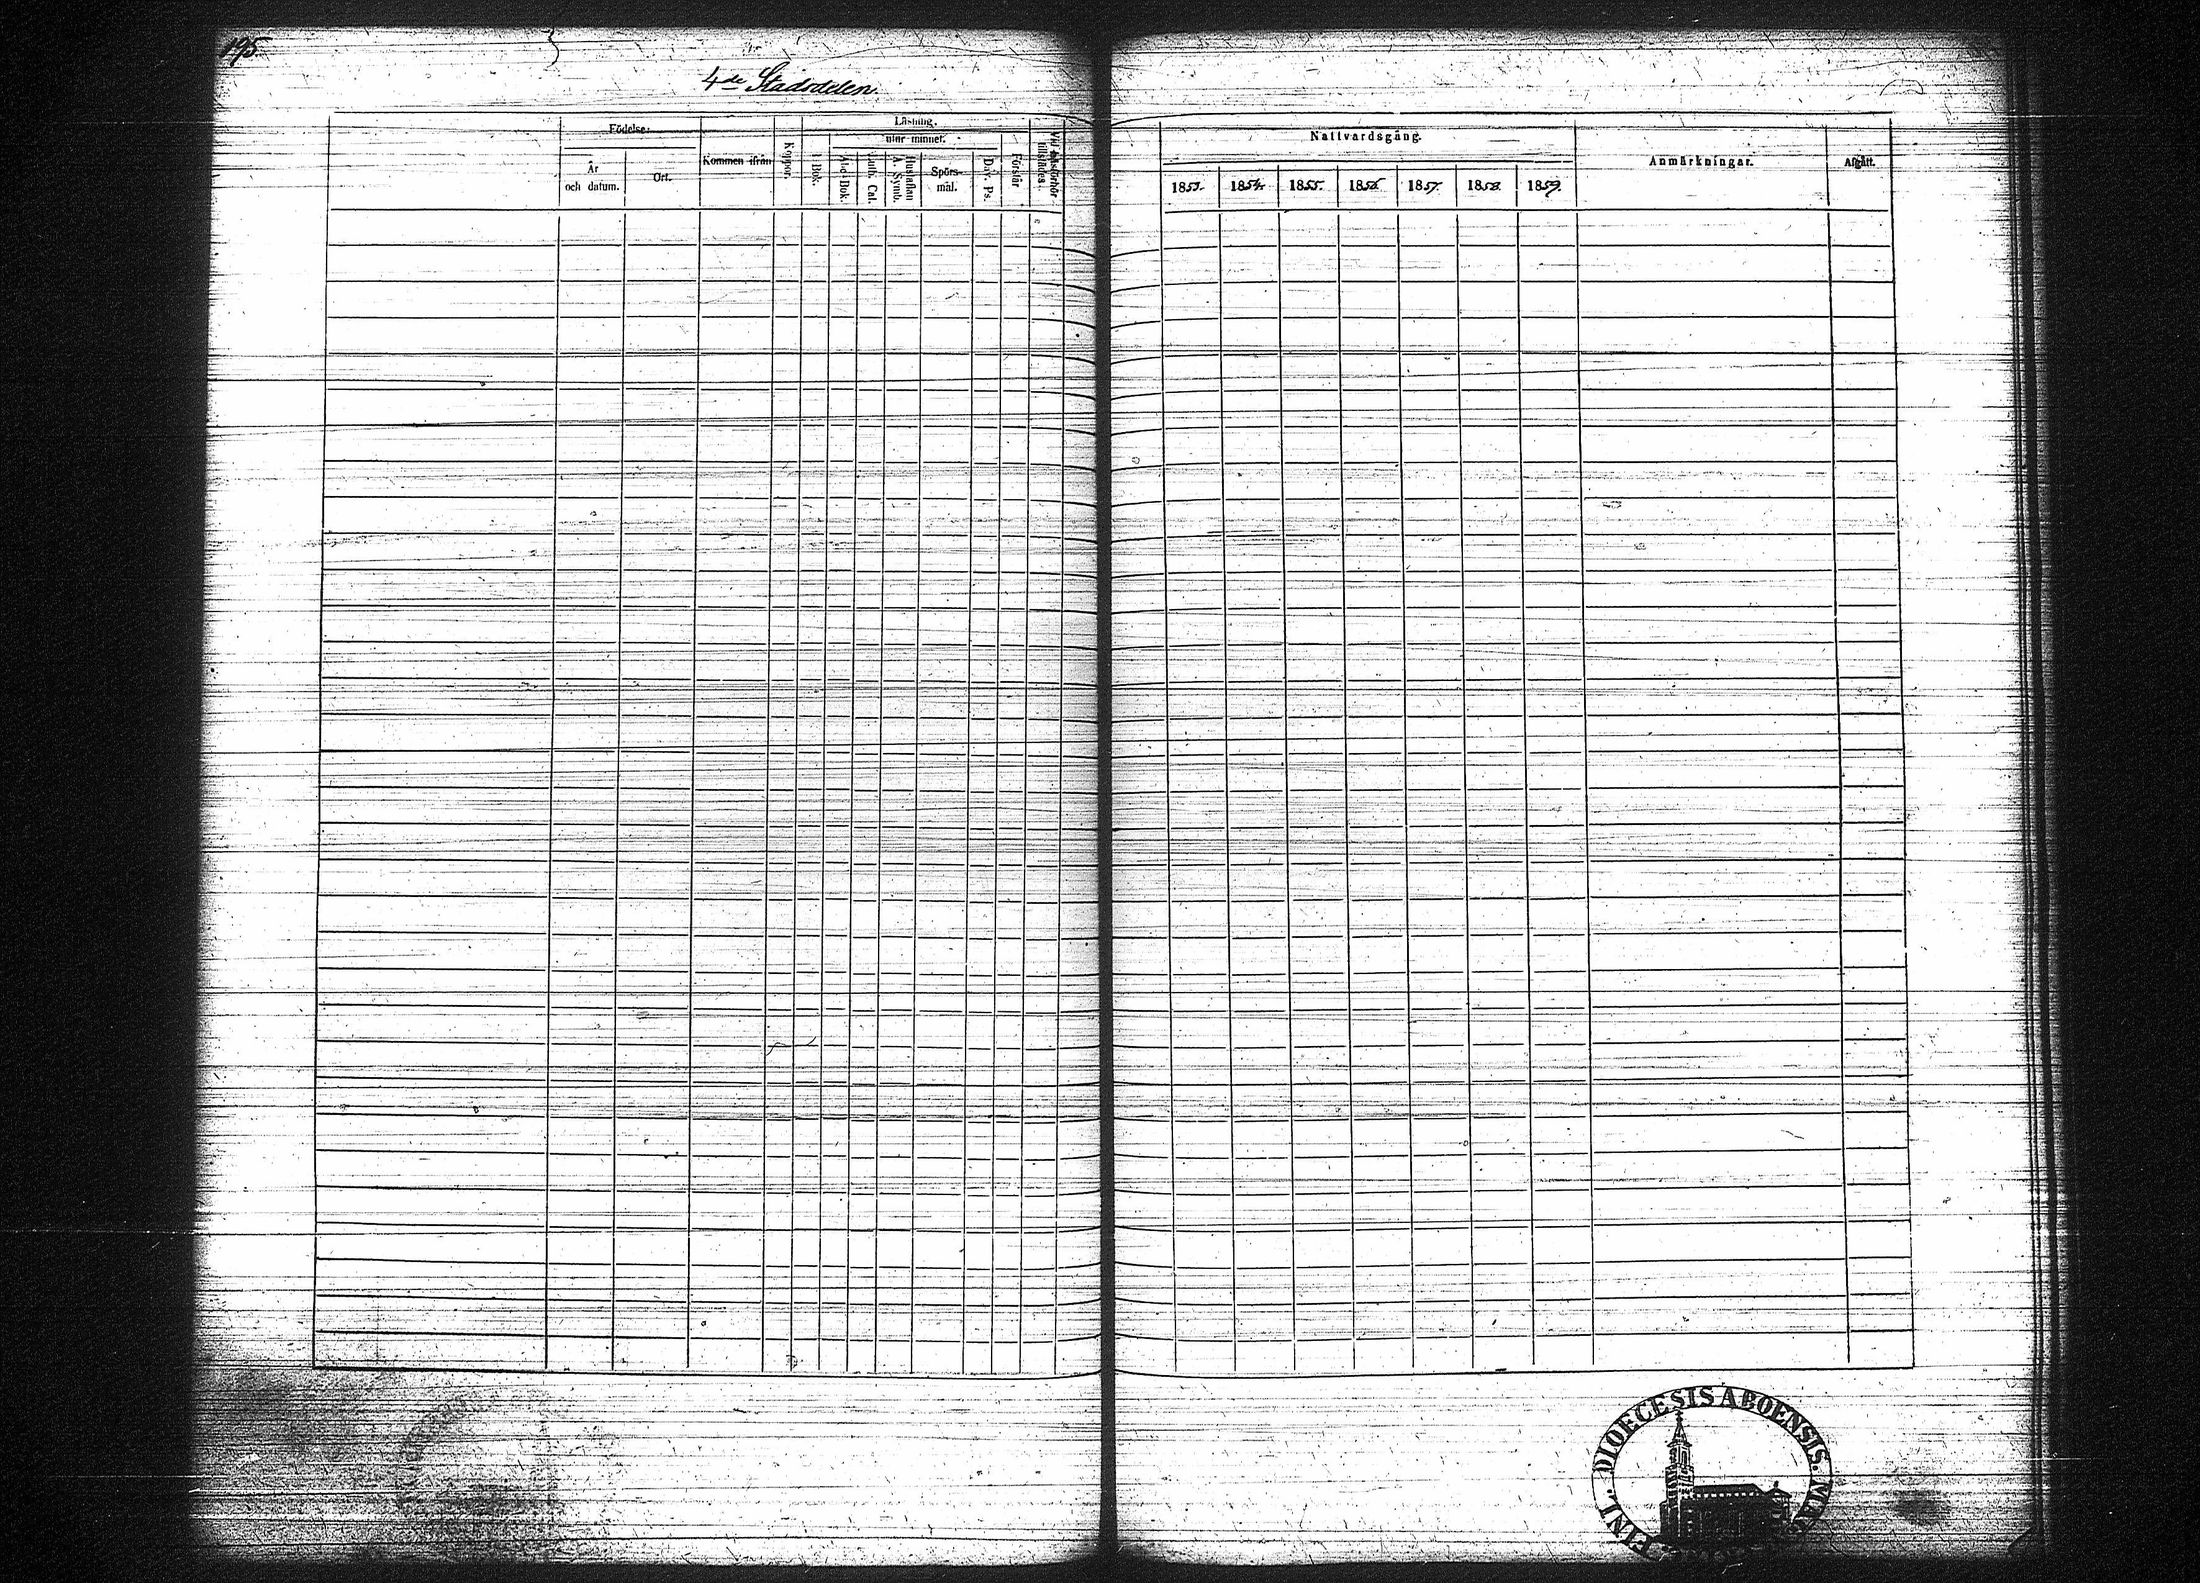 195.
4de Stadsdelen.
Födelse-
År
och datum.
Ort.
Kommen ifrån
Koppor.
Läsning.
utur minnet.
I Bok.
Abc-Bok.
Luth. Cat.
Hustaflan
A. Symb.
Spörs-
mål.
Dav. Ps.
Förstår
Vid
tillstädes.
Nattvardsgång.
1853.
1854.
1855.
1856.
1857.
1858.
1859.
Anmärkningar.
Afgått.
FINL. DIOECESIS ABOENSIS.